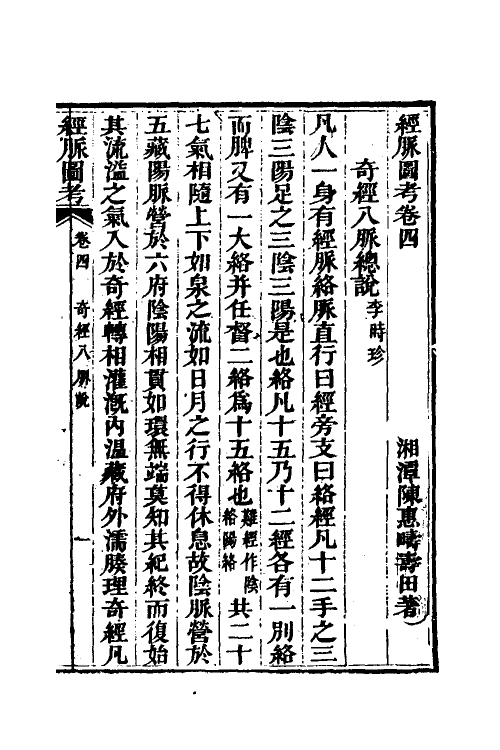 經脈圖考卷四
湘潭陳惠疇壽田著
奇經八脈總說李時珍
凡人一身有經脈絡脈直行曰經旁支曰絡經凡十二手之三
陰三陽足之三陰三陽是也絡凡十五乃十二經各有一別絡
而脾又有一大絡并任督二絡為十五絡也難經作陰絡陽絡共二十
七氣相隨上下如泉之流如日月之行不得休息故陰脈營於
五藏陽脈營於六府陰陽相貫如環無端莫知其紀終而復始
其流溢之氣入於奇經轉相灌溉內溫藏府外濡腠理奇經凡
經脈圖考
卷四
奇經八脈說
一